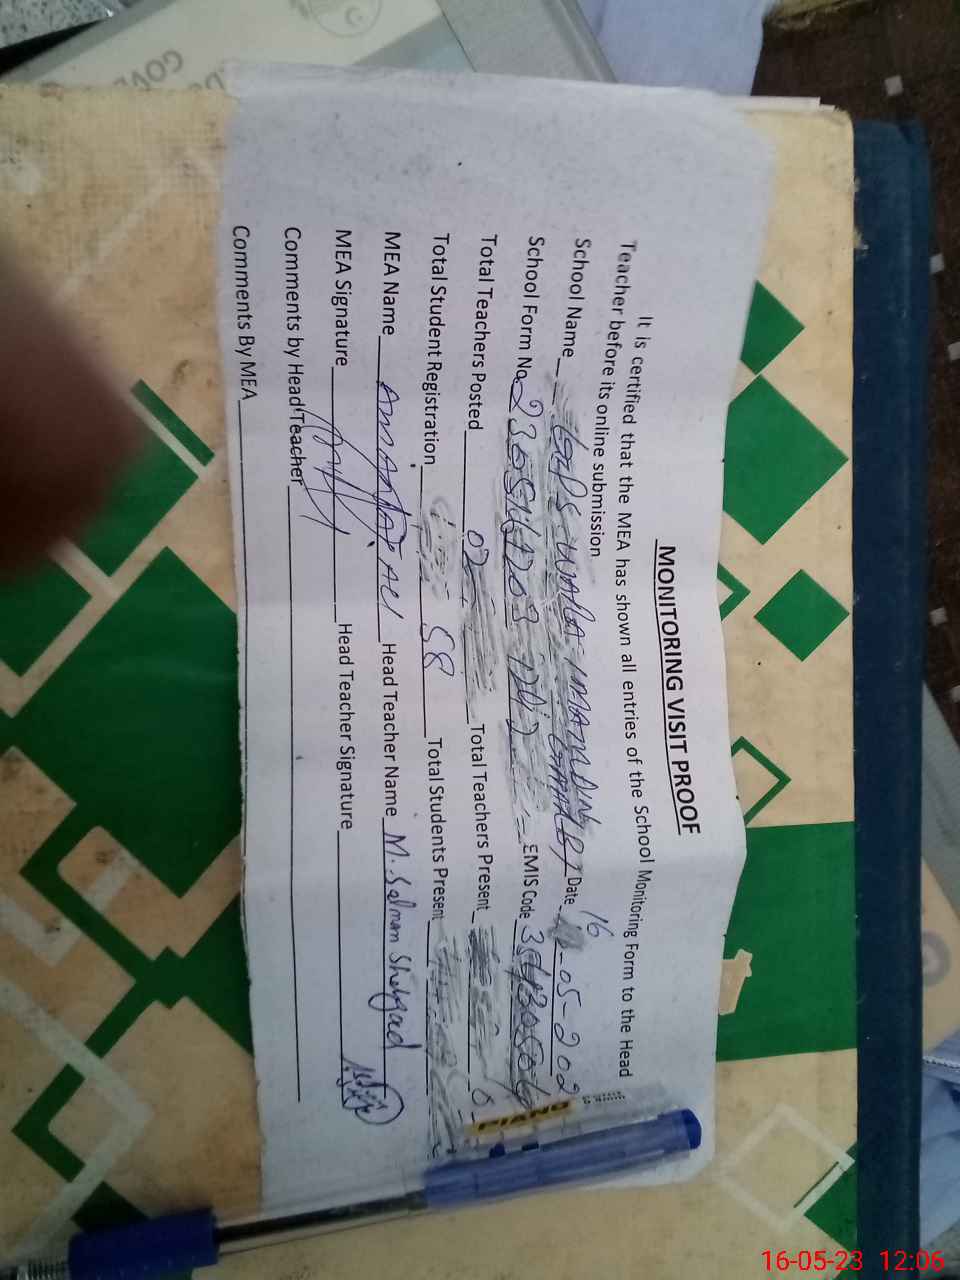 MONITORING VISIT PROOF
It is certified that the MEA has shown all entries of the School Monitoring Form to the Head
Teacher before its online submission
School Name GPS WALA IMAM DIN Date 16-05-202
School Form No. EMIS Code
Total Teachers Posted 02 Total Teachers Present
Total Student Registration 58 Total Students Present
MEA Name Head Teacher Name M. Salman Shehzad
MEA Signature Head Teacher Signature
Comments by Head Teacher
Comments By MEA
PIANO
GOVE
16-05-23 12:06